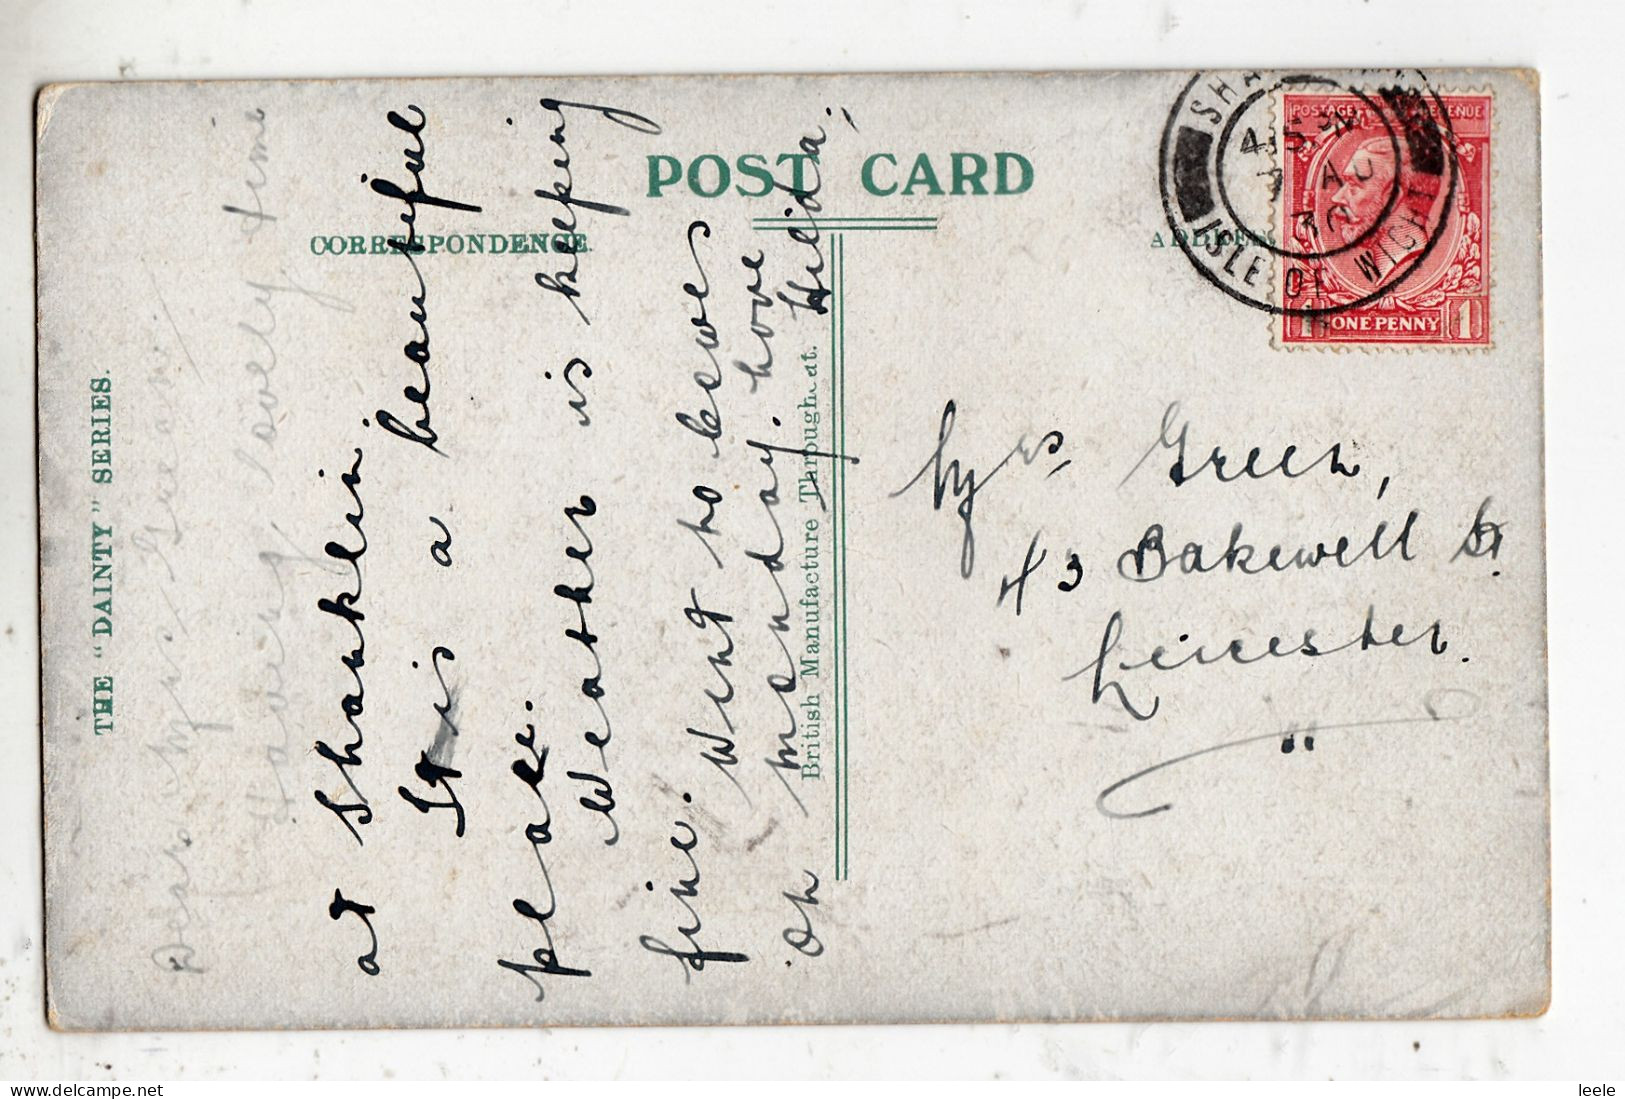 POST CARD
CORRESPONDENCE.
THE "DAINTY" SERIES.
British Manufacture Throughout.
Dear Mrs Green,
Having lovely time
at Shanklin.
It is a beautiful
place.
Weather is keeping
fine. Went to Cowes
on monday. Love
Hilda.
ISLE OF WIGHT
4.15 PM
AU
30
POSTAGE REVENUE
1 ONE PENNY 1
Mrs Green,
43 Bakewell St.
Leicester.
leele